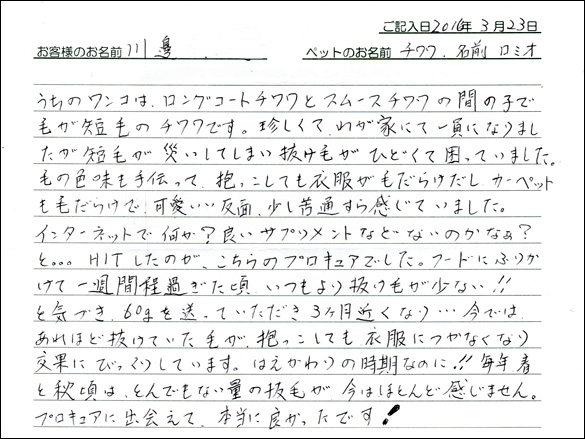 ご記入日2016年3月23日
お客様のお名前 川邊 ペットのお名前 チワワ、名前 ロミオ
うちのワンコは、ロングコートチワワとスムースチワワの間の子で
毛が短毛のチワワです。珍しくて、わが家にて一員になりまし
たが短毛が災いしてしまい抜け毛がひどくて困っていました。
毛の色味も手伝って、抱っこしても衣服が毛だらけだし、カーペット
も毛だらけで、可愛いい反面、少し苦通すら感じていました。
インターネットで何か?良いサプリメントなどないのかなぁ?
と… HITしたのが、こちらのプロキュアでした。フードにふりか
けて一週間程過ぎた頃、いつもより抜け毛が少ない!!
と気づき、60gを送っていただき3ヶ月近くなり… 今では、
あれほど抜けていた毛が、抱っこしても衣服につかなくなり
交果にびっくりしています。はえかわりの時期なのに!!毎年春
と秋頃は、とんでもない量の抜毛が今はほとんど感じません。
プロキュアに出会えて、本当に良かったです!